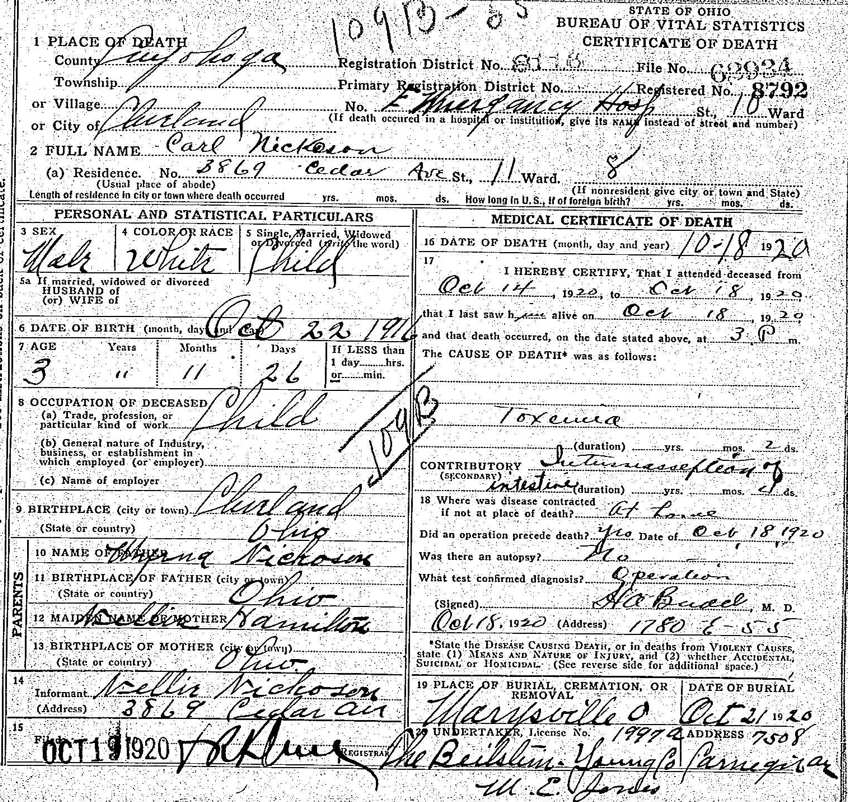 109B-
STATE OF OHIO
BUREAU OF VITAL STATISTICS
CERTIFICATE OF DEATH
1 PLACE OF DEATH
County Cuyohoga
Registration District No. File No. 63934
Township Primary Registration District No. Registered No. 8792
or Village No. Emergancy Hosp St., 10 Ward
or City of Cleveland (If death occured in a hospital or institution, give its NAME instead of street and number)
2 FULL NAME Carl Nickoson
(a) Residence. No. 3869 Cedar Ave St., 11 Ward. 8
(Usual place of abode) (If nonresident give city or town and State)
Length of residence in city or town where death occurred yrs. mos. ds. How long in U.S., if of foreign birth? yrs. mos. ds.
PERSONAL AND STATISTICAL PARTICULARS
3 SEX 4 COLOR OR RACE 5 Single, Married, Widowed
or Divorced (write the word)
Male White Child
5a If married, widowed or divorced
HUSBAND of
(or) WIFE of
6 DATE OF BIRTH (month, day and year) Oct 22 1916
7 AGE Years Months Days If LESS than
1 day hrs.
or min.
3 " 11 26
8 OCCUPATION OF DECEASED
(a) Trade, profession, or
particular kind of work Child
(b) General nature of Industry,
business, or establishment in
which employed (or employer)
(c) Name of employer
109B
9 BIRTHPLACE (city or town) Cleveland
(State or country) Ohio
PARENTS
10 NAME OF FATHER Nickoson
11 BIRTHPLACE OF FATHER (city or town)
(State or country) Ohio
12 MAIDEN NAME OF MOTHER Nellie Hamilton
13 BIRTHPLACE OF MOTHER (city or town)
(State or country) Ohio
14
Informant Nellie Nickoson
(Address) 3869 Cedar Ave
15
Filed OCT 19 1920 REGISTRAR
MEDICAL CERTIFICATE OF DEATH
16 DATE OF DEATH (month, day and year) 10-18 1920
17
I HEREBY CERTIFY, That I attended deceased from
Oct 14, 1920, to Oct 18, 1920
that I last saw him alive on Oct 18, 1920
and that death occurred, on the date stated above, at 3 P m.
The CAUSE OF DEATH* was as follows:
Toxemia
(duration) yrs. mos. 2 ds.
CONTRIBUTORY Intussusception of
(SECONDARY) intestine (duration) yrs. mos. 4 ds.
18 Where was disease contracted
if not at place of death? At home
Did an operation precede death? Yes Date of Oct 18 1920
Was there an autopsy? No
What test confirmed diagnosis? Operation
(Signed) M. D.
Oct 18, 1920 (Address) 1780 E-55
*State the DISEASE CAUSING DEATH, or in deaths from VIOLENT CAUSES,
state (1) MEANS AND NATURE OF INJURY, and (2) whether ACCIDENTAL,
SUICIDAL or HOMICIDAL. (See reverse side for additional space.)
19 PLACE OF BURIAL, CREMATION, OR
REMOVAL DATE OF BURIAL
Marysville O Oct 21 1920
20 UNDERTAKER, License No. 1997a ADDRESS 7508
The Beilstein-Young Co Carnegie av
M. E. Jones